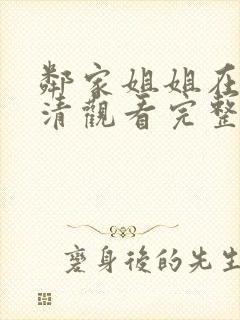 鄰家姐姐在
清觀看完整
變身後的先生